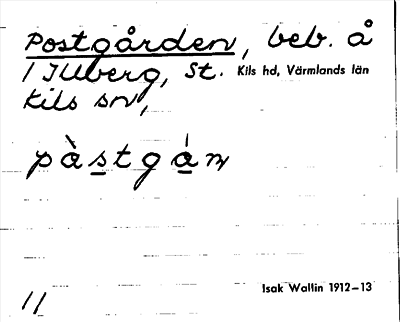 Postgården, beb. å
1 Illberg, St. Kils hd, Värmlands län
Kils sn,
pàstgán
11
Isak Wallin 1912–13